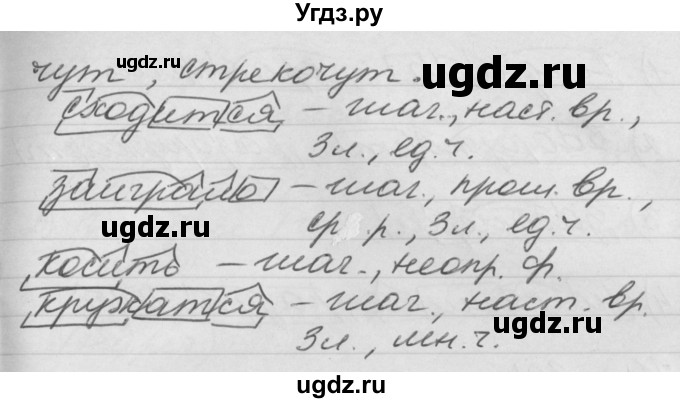 Угдз.ру
чут, стрекочут.
сходится – глаг., наст. вр.,
3 л., ед. ч.
заиграло – глаг., прош. вр.,
ср. р., 3 л., ед. ч.
косить – глаг., неопр. ф.
кружатся – глаг., наст. вр.
3 л., мн. ч.
ugdz.ru
ugdz.ru
ugdz.ru
ugdz.ru
ugdz.ru
ugdz.ru
ugdz.ru